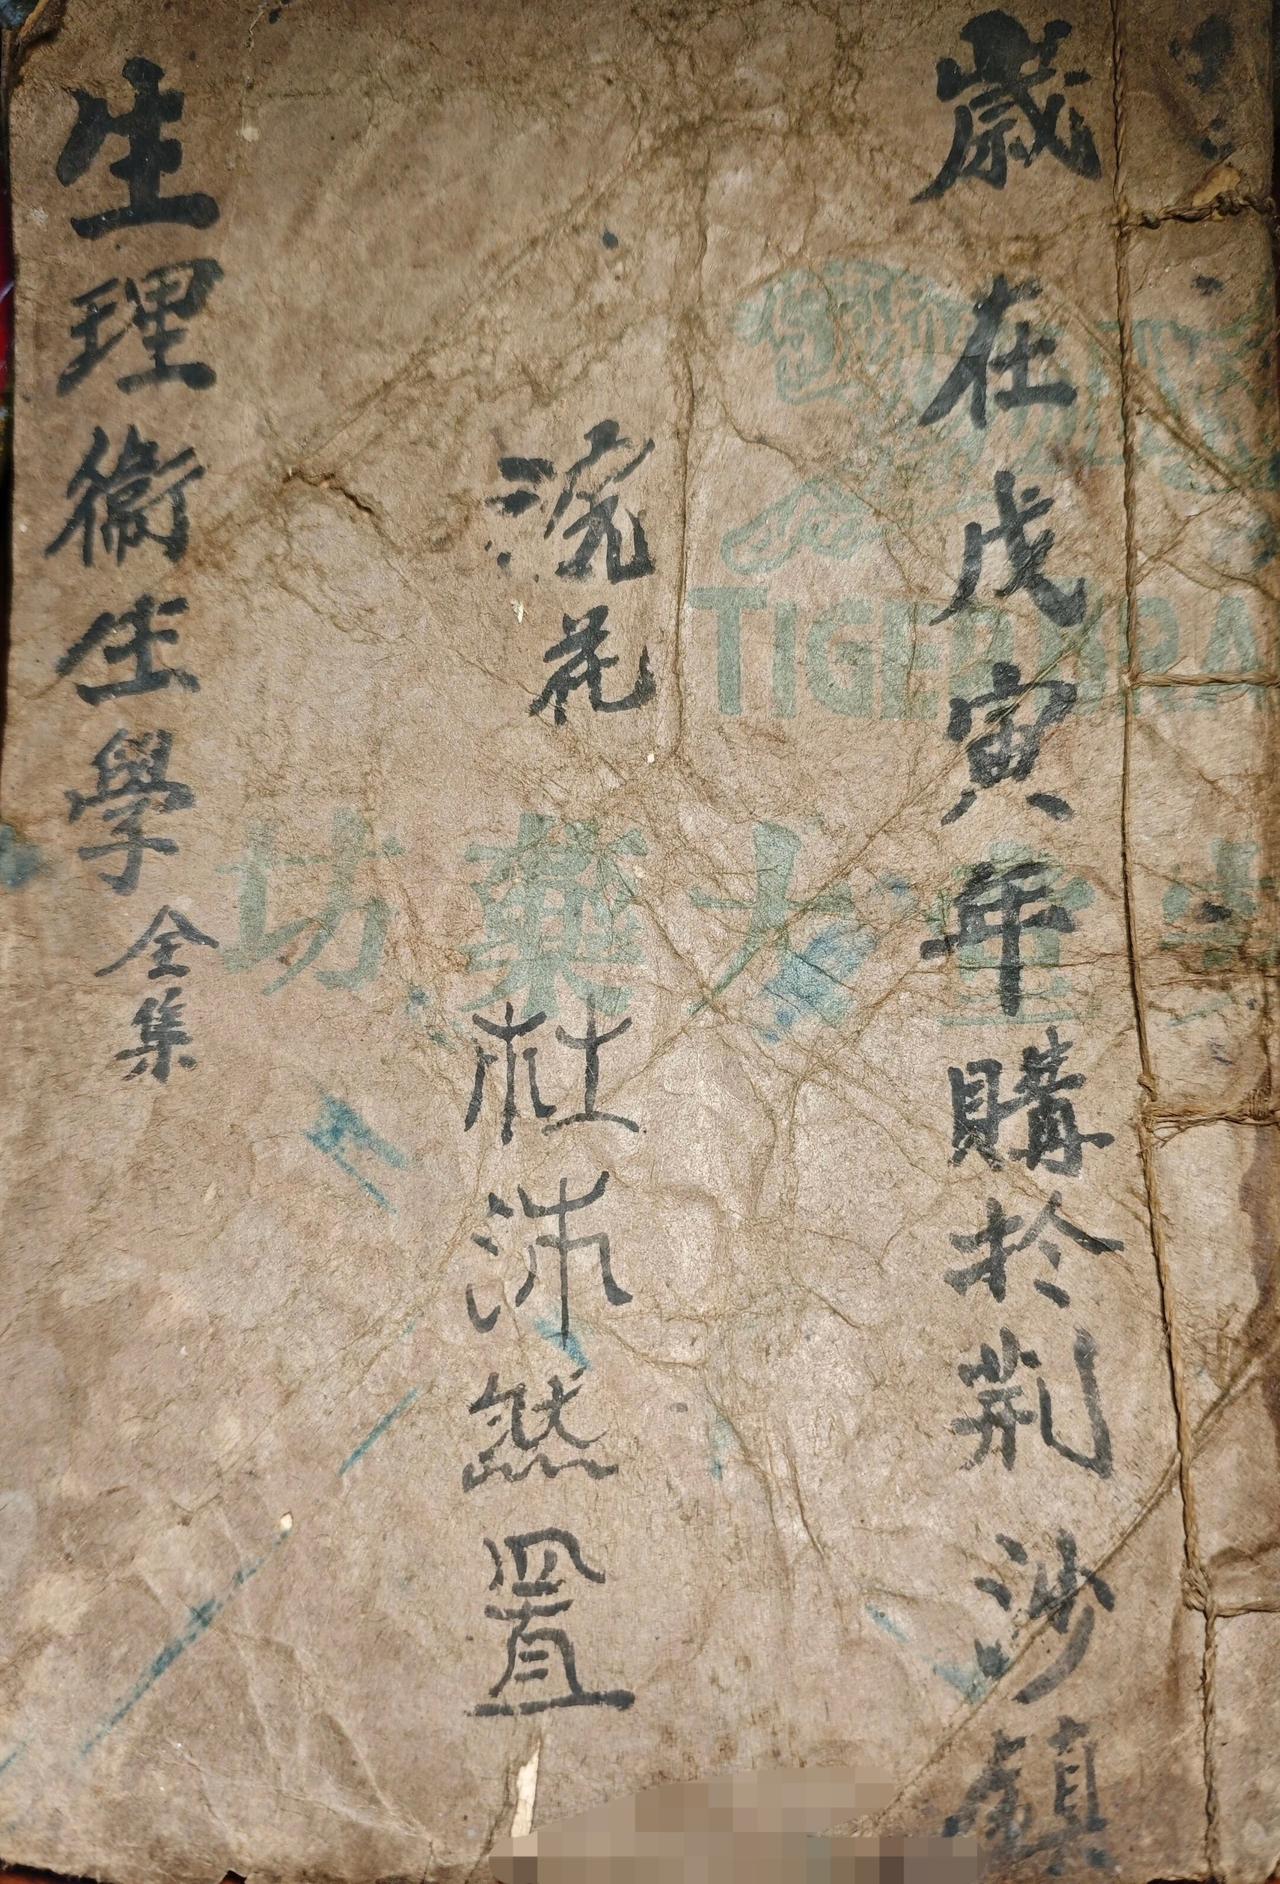 歲在戊寅年購於荊沙鎮
浣花
杜沛然置
生理衞生學全集
TIGER BRA
堂大藥坊